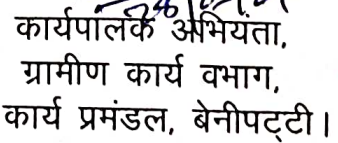 कार्यपालक अभियंता,
ग्रामीण कार्य वभाग,
कार्य प्रमंडल, बेनीपट्टी।